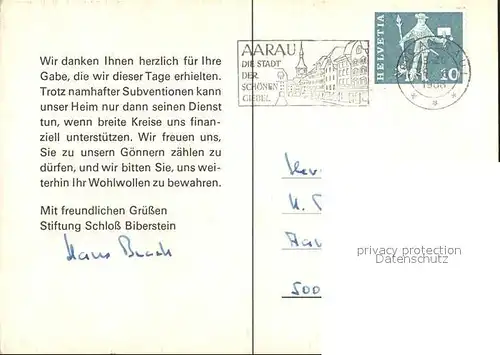 Wir danken Ihnen herzlich für Ihre
Gabe, die wir dieser Tage erhielten.
Trotz namhafter Subventionen kann
unser Heim nur dann seinen Dienst
tun, wenn breite Kreise uns finan-
ziell unterstützen. Wir freuen uns,
Sie zu unsern Gönnern zählen zu
dürfen, und wir bitten Sie, uns wei-
terhin Ihr Wohlwollen zu bewahren.
Mit freundlichen Grüßen
Stiftung Schloß Biberstein
Hans
AARAU
DIE STADT
DER
SCHÖNEN
GIEBEL
HELVETIA
10
500
privacy protection
Datenschutz